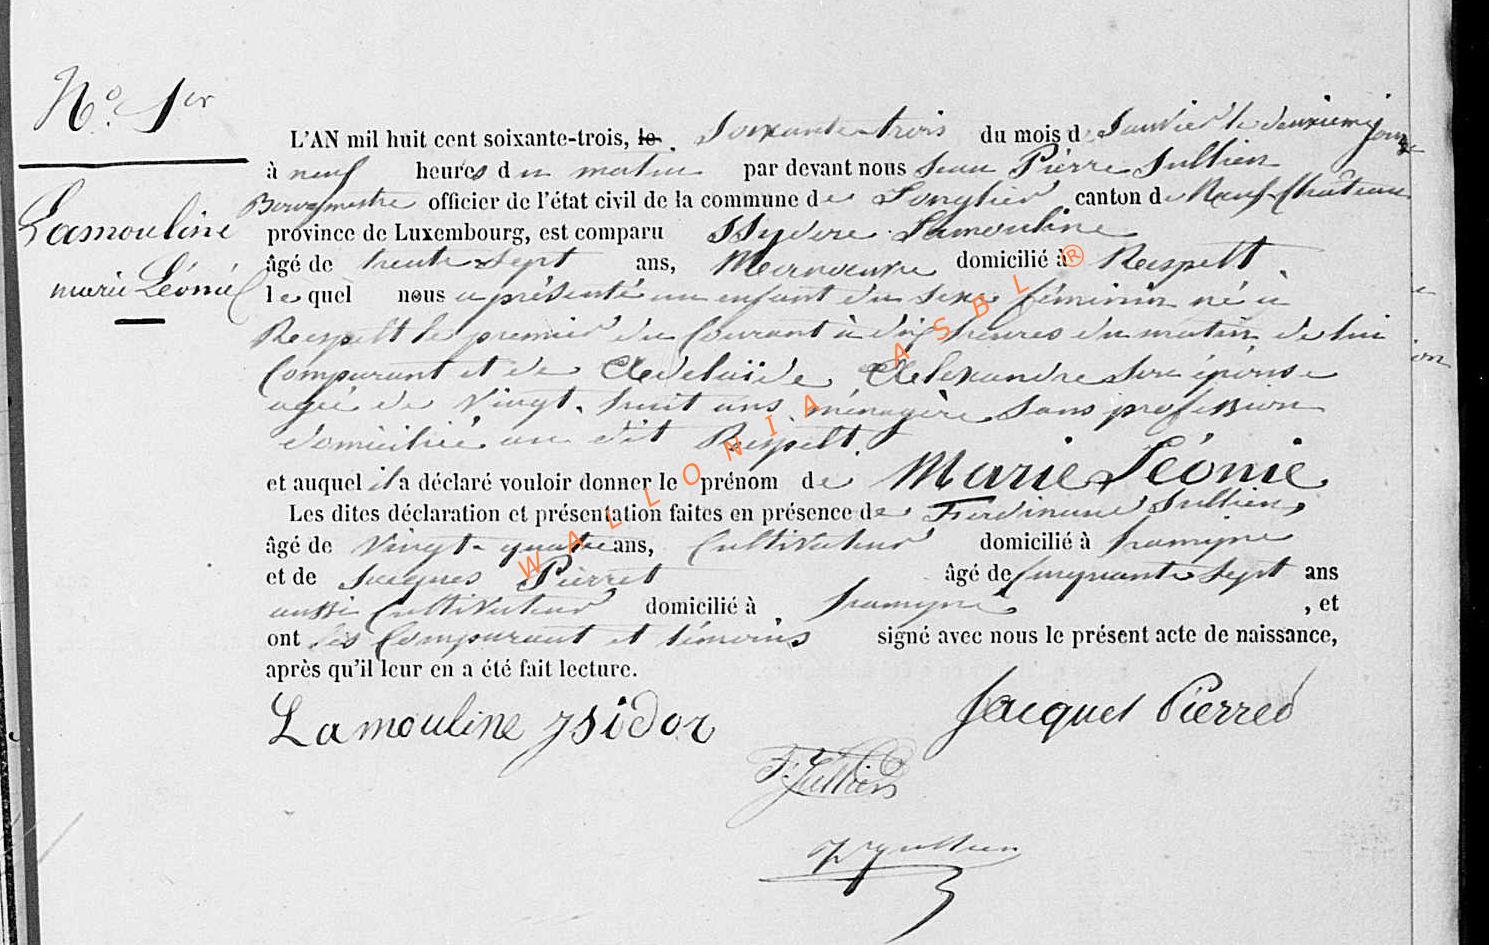 N.° 1er
Lamouline
marie Léonie
L'AN mil huit cent soixante-trois, le. Soixante trois du mois de Janvier le deuxieme jour
à neuf heures du matin par devant nous Jean Pierre Jullien
Bourgmestre officier de l'état civil de la commune de Longlier canton de Neufchâteau
province de Luxembourg, est comparu Isydore Lamouline
âgé de trente sept ans, Manoeuvre domicilié à Respelt
lequel nous a présenté un enfant du sexe féminin né à
Respelt le premier du Courant à dix heures du matin de lui
Comparant et de Adelaïde Alexandre son épouse
agée de Vingt-huit ans ménagère sans profession
domiciliée au dit Respelt.
et auquel il a déclaré vouloir donner le prénom de Marie Léonie
Les dites déclaration et présentation faites en présence de Ferdinand Jullien,
âgé de Vingt-quatre ans, Cultivateur domicilié à hamipré
et de Jacques Pierret âgé de Cinquante Sept ans
aussi Cultivateur domicilié à hamipré , et
ont les Comparant et témoins signé avec nous le présent acte de naissance,
après qu'il leur en a été fait lecture.
Lamouline ysidor
Jacques Pierred
F. Jullien
Jullien
WALLONIA ASBL ®